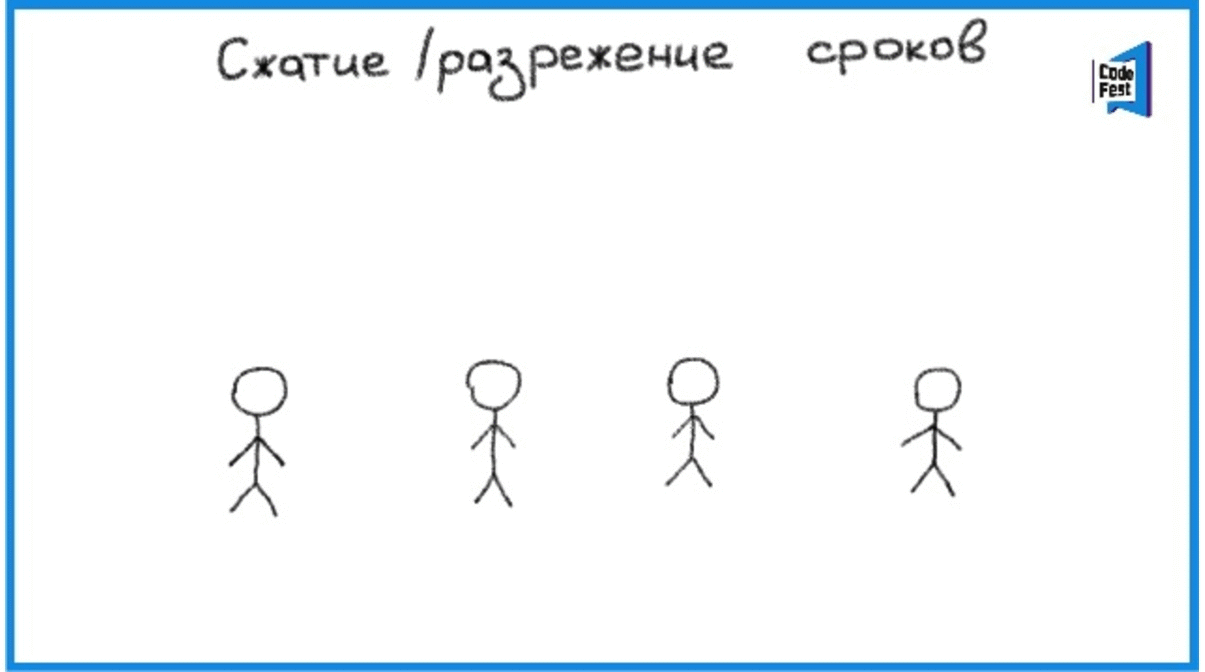 Сжатие /разрежение сроков
Code
Fest